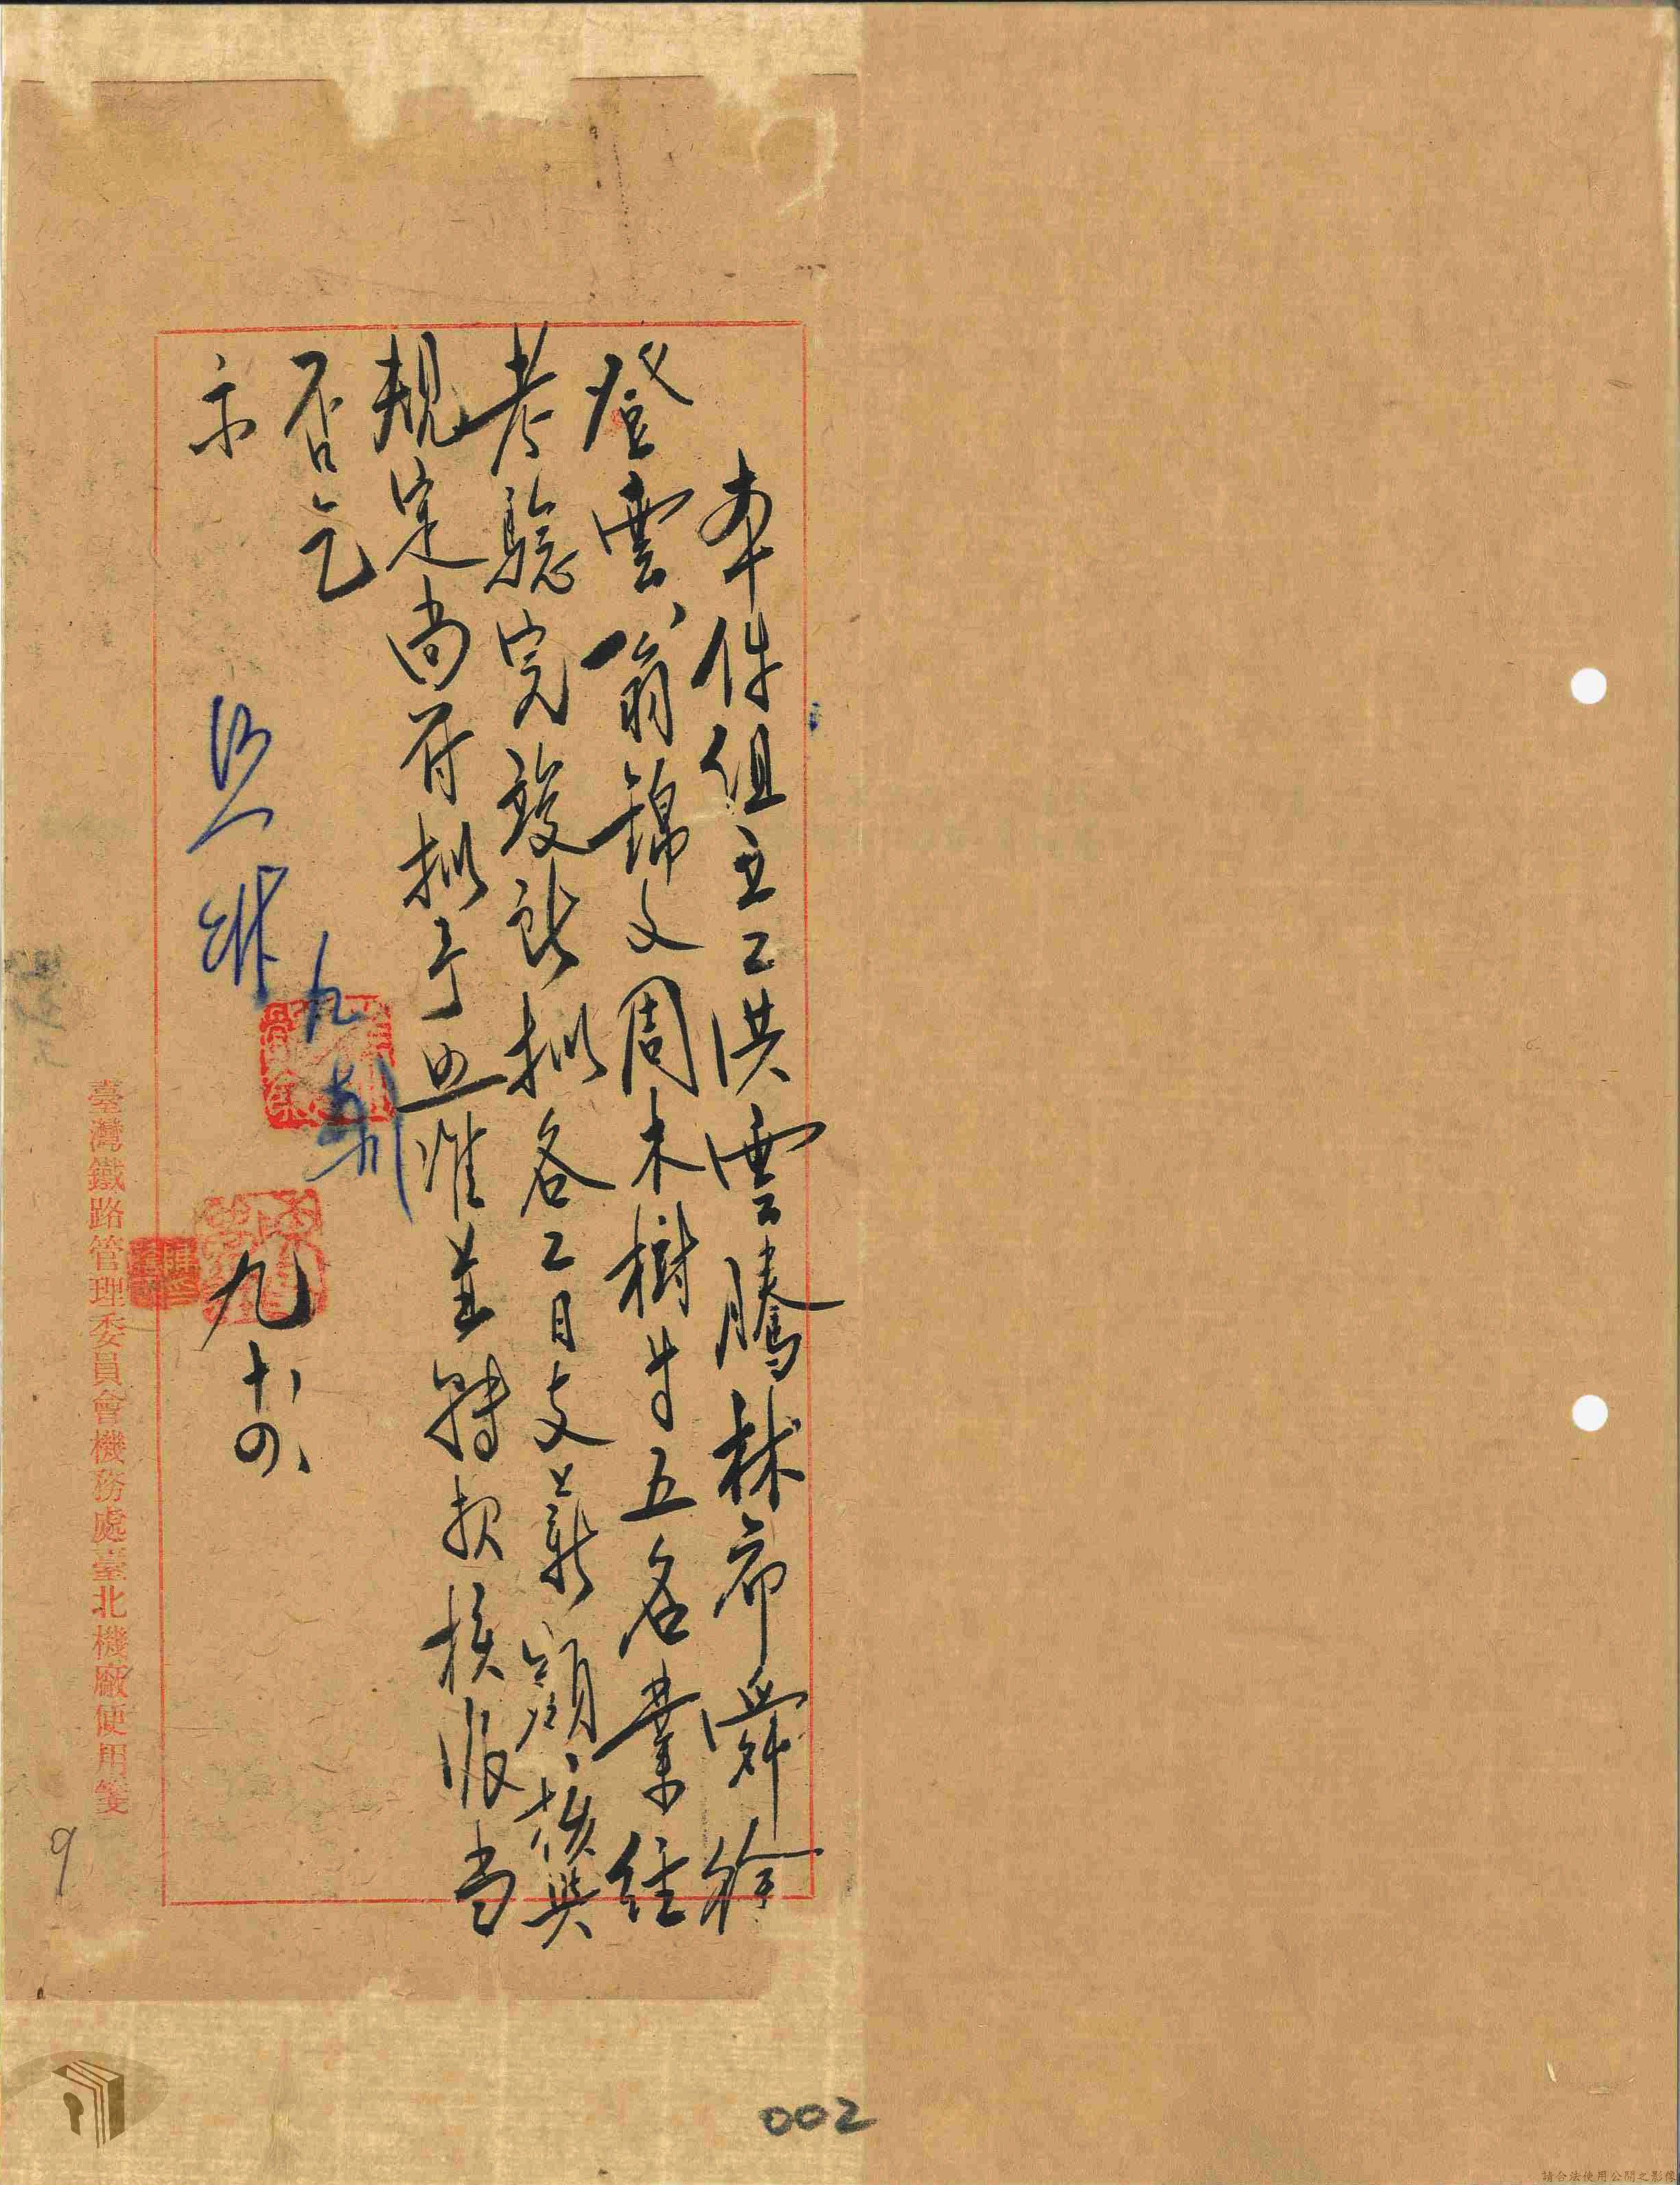 車件組立工洪雲騰林希舜徐
登雲、翁錦文周木樹等五名業經
考驗完竣訖擬各工目支薪額、核與
規定尚符擬予照准並轉報核派當
否乞
示
照准
九
九
十四、
臺灣鐵路管理委員會機務處臺北機廠使用箋
9
002
請合法使用公開之影像